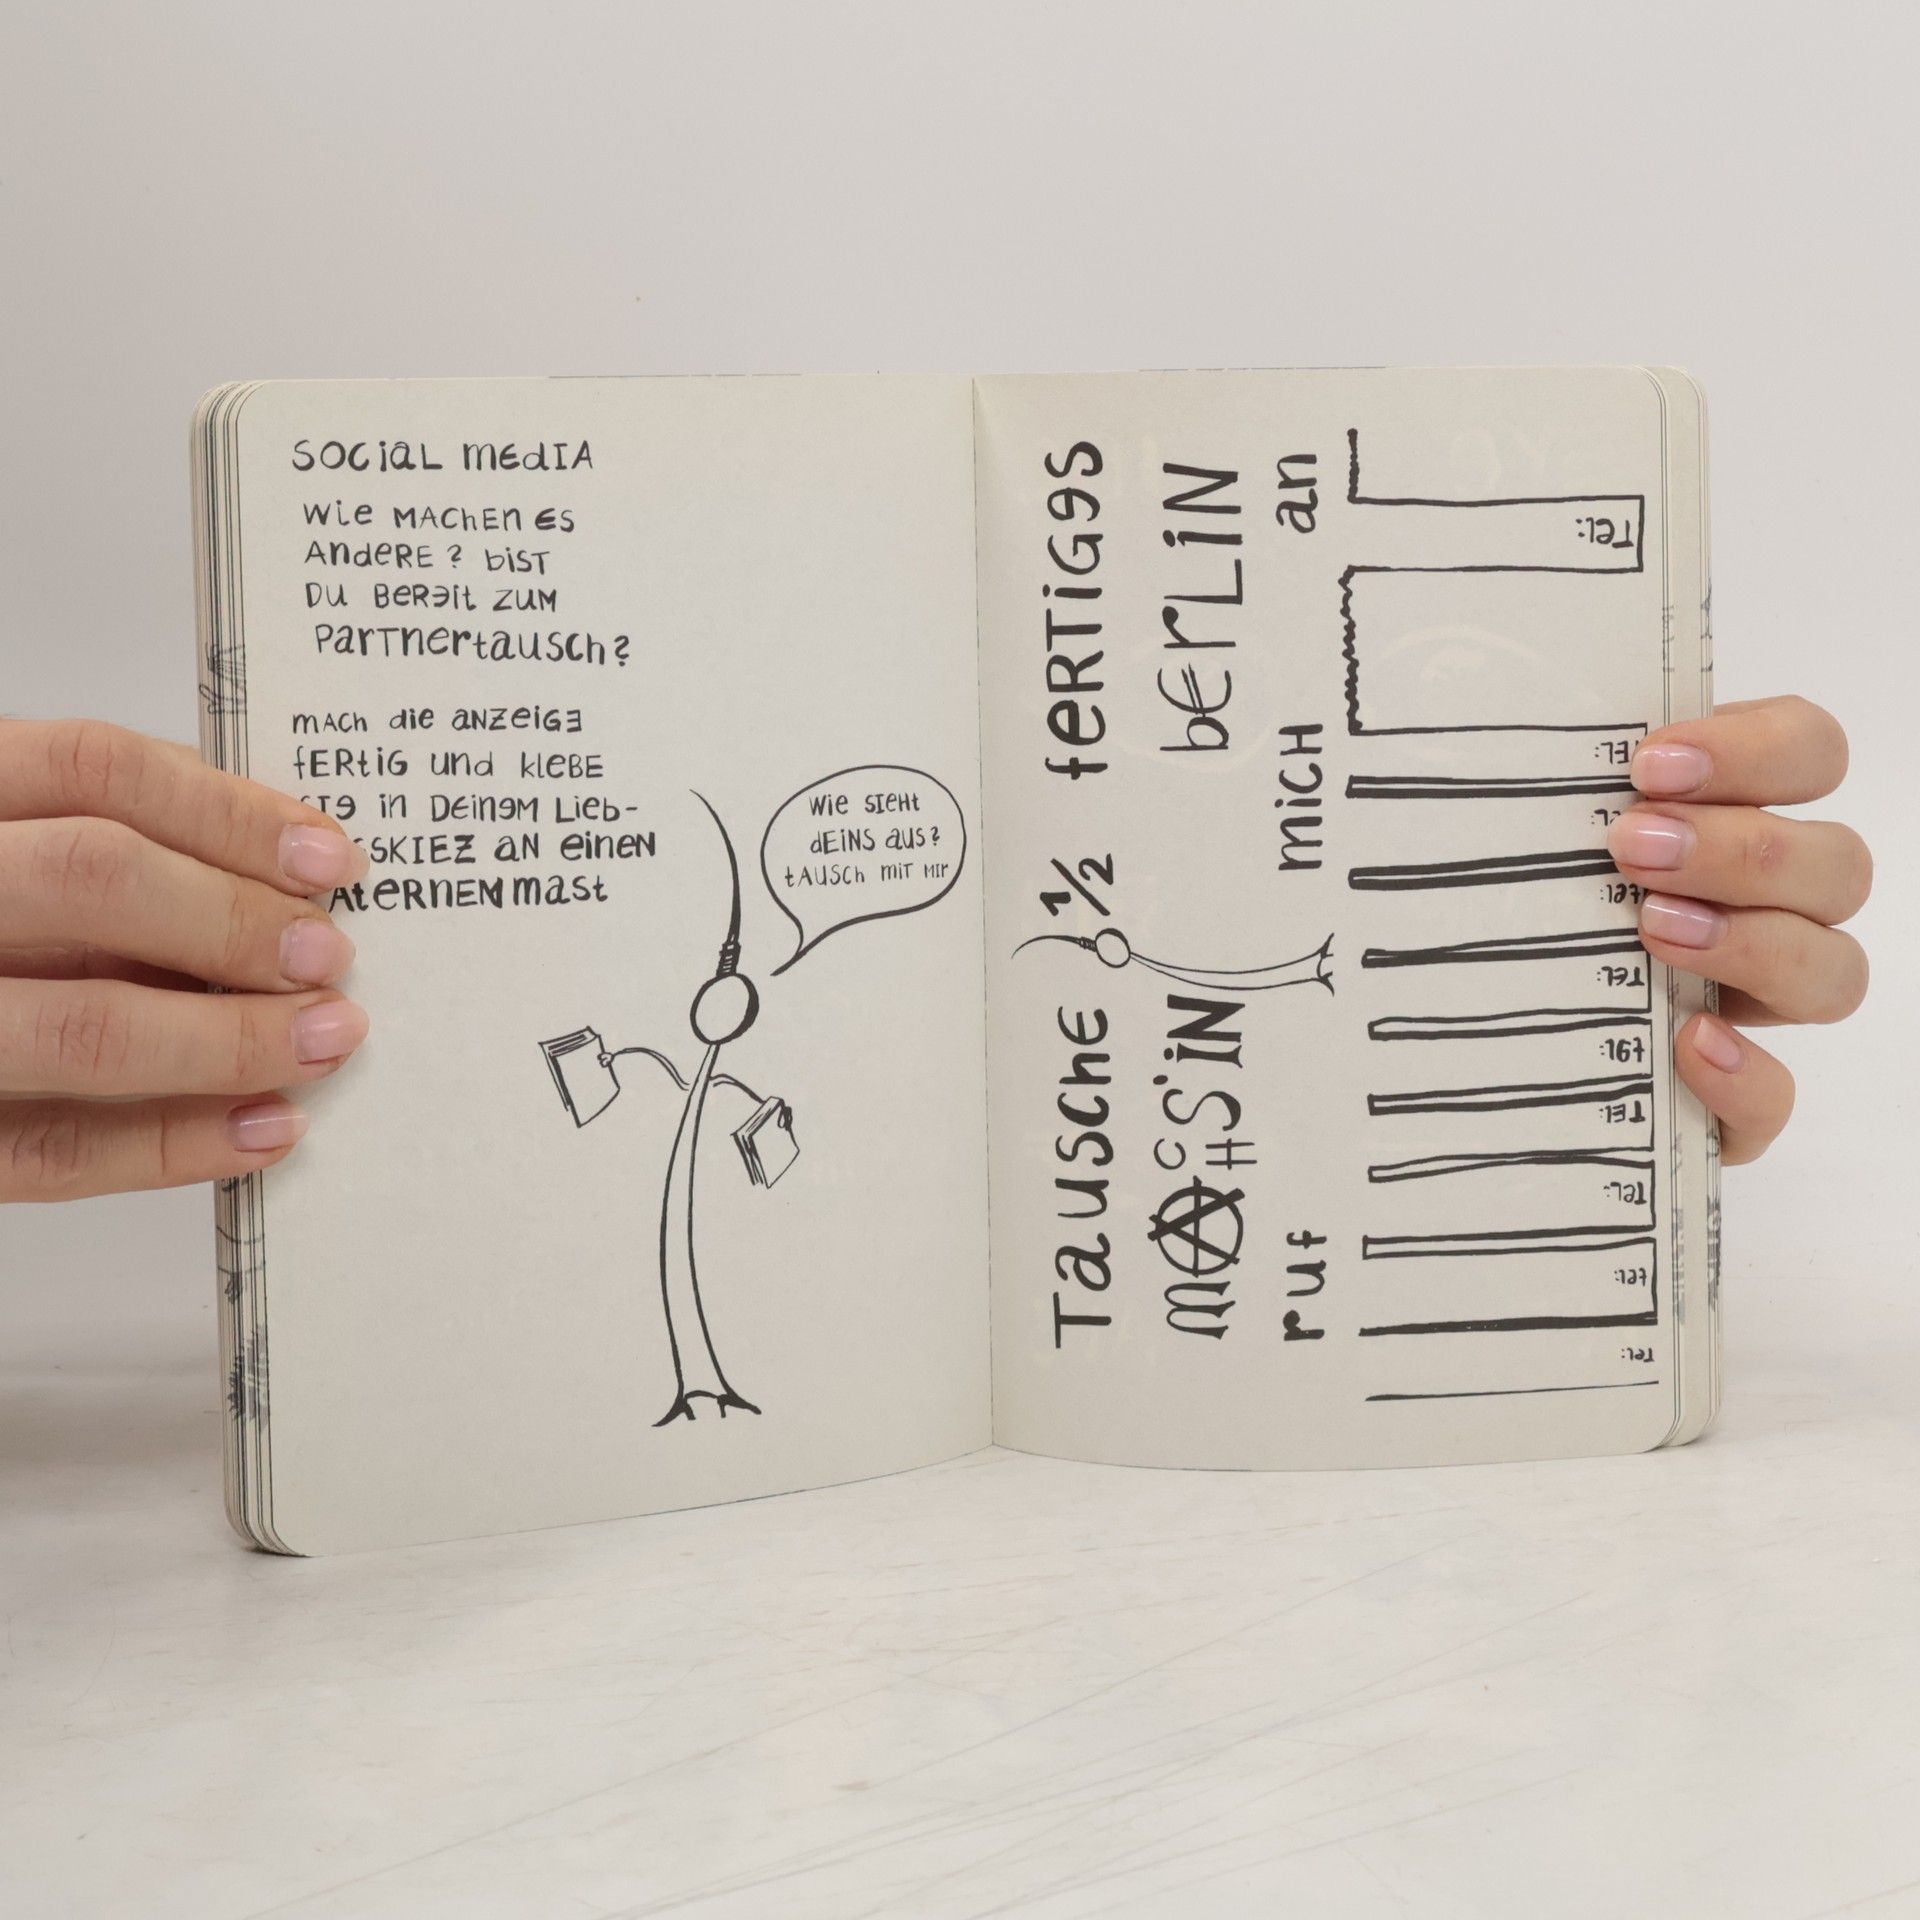 SOCiaL mEdIA
Wie MAChEn ES
AndeRE? biST
DU BeREit ZUM
ParTnertausch?
mACh die ANZeiGE
fERtiG und kleBE
in DEinEM Lieb-
SSKIEZ aN einen
AteRNEN mast
Wie SIEHt
dEiNS aus?
tAUSCh miT MIr
TauschE 1/2 feRTiGES
MACHS iN bErLiN
ruf miCH an
TEL:
TEL:
tEL:
TEL:
tEL:
TEL:
TEL:
tEL:
TEL: